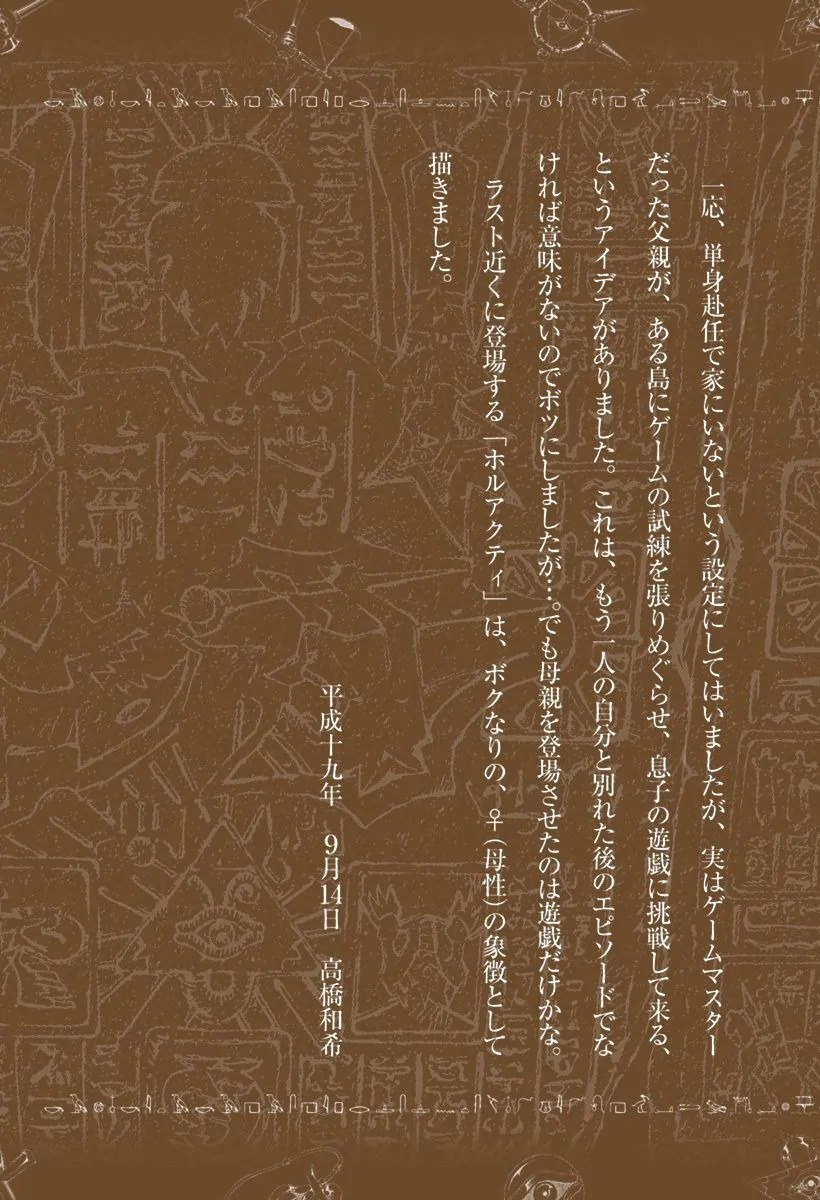 一応、単身赴任で家にいないという設定にしてはいましたが、実はゲームマスター
だった父親が、ある島にゲームの試練を張りめぐらせ、息子の遊戯に挑戦して来る、
というアイデアがありました。これは、もう一人の自分と別れた後のエピソードでな
ければ意味がないのでボツにしましたが…。でも母親を登場させたのは遊戯だけかな。
　ラスト近くに登場する「ホルアクティ」は、ボクなりの、♀（母性）の象徴として
描きました。
平成十九年　９月14日　高橋和希